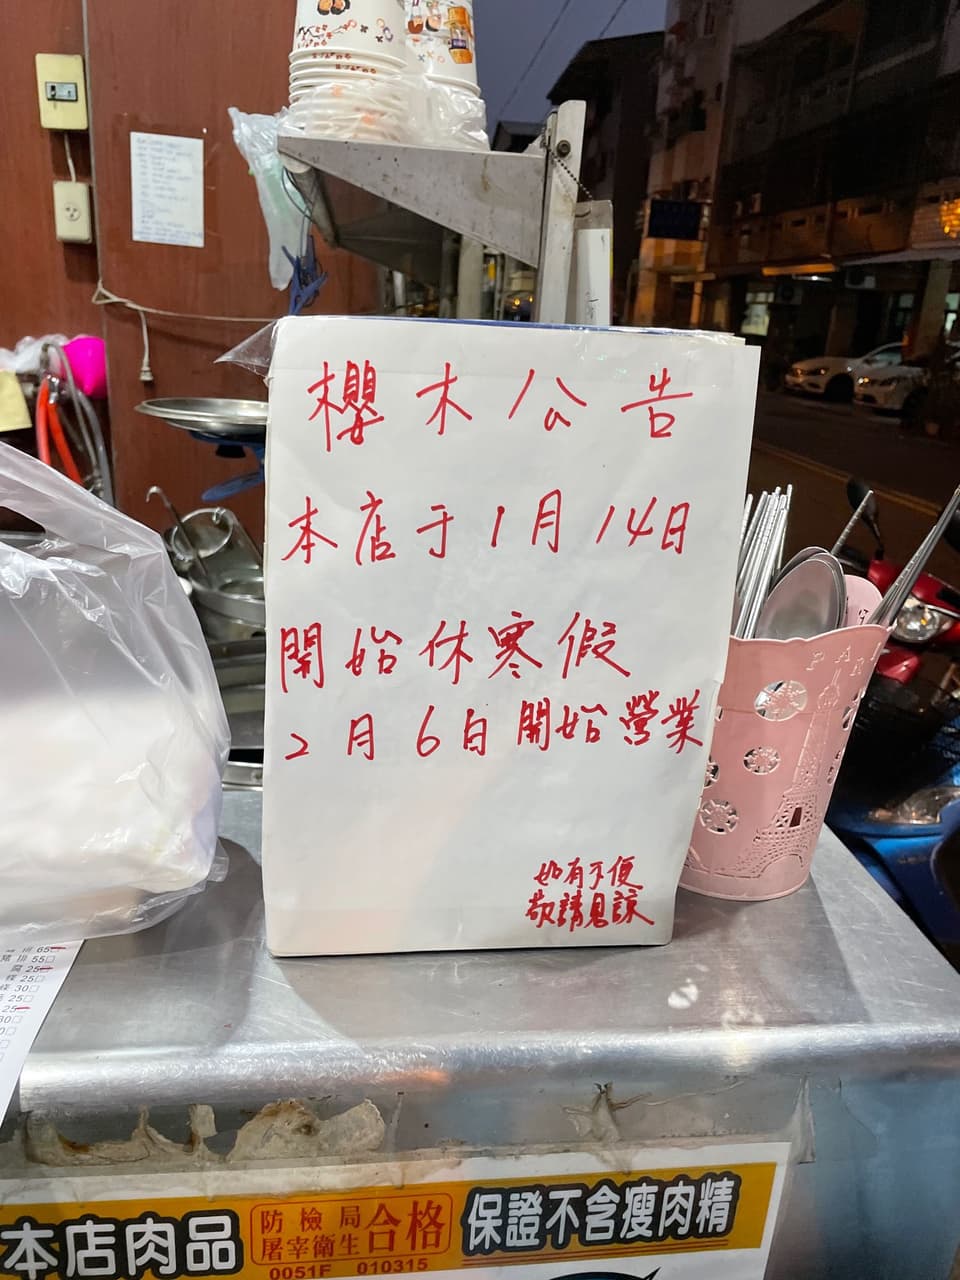 櫻木公告
本店于1月14日
開始休寒假
2月6日開始營業
如有不便
敬請見諒
排 65
豬排 55
25
25
30
25
25
30
本店肉品
防檢局
屠宰衛生
合格
0051F 010315
保證不含瘦肉精
PAR